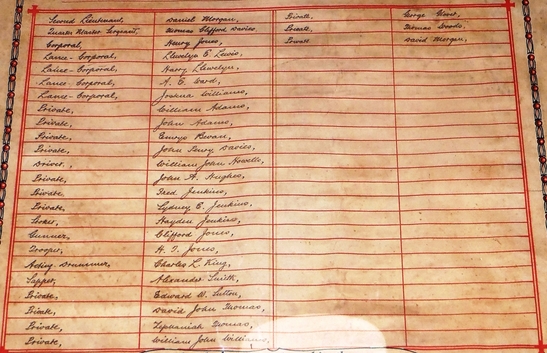 Second Lieutenant, Daniel Morgan,
Quarter Master Sergeant, Thomas Clifford Davies,
Corporal, Henry Jones,
Lance-Corporal, Llewelyn E. Lewis,
Lance-Corporal, Harry Llewelyn,
Lance-Corporal, A. E. Ward,
Lance-Corporal, Joshua Williams,
Private, William Adams,
Private, John Adams,
Private, Emrys Bevan,
Private, John Davies,
Driver, William John Howells,
Private, John A. Hughes,
Private, Fred Jenkins,
Private, Sydney E. Jenkins,
Hayden Jenkins,
Gunner, Clifford Jones,
Trooper, Jones,
Acting Drummer, Charles L. King,
Sapper, Alexander Smith,
Private, Edward W. Sutton,
Private, David John Thomas,
Private, Zephaniah Thomas,
Private, William John Williams,
Private, George Wood,
Private, Thomas Woods,
Private, David Morgan,